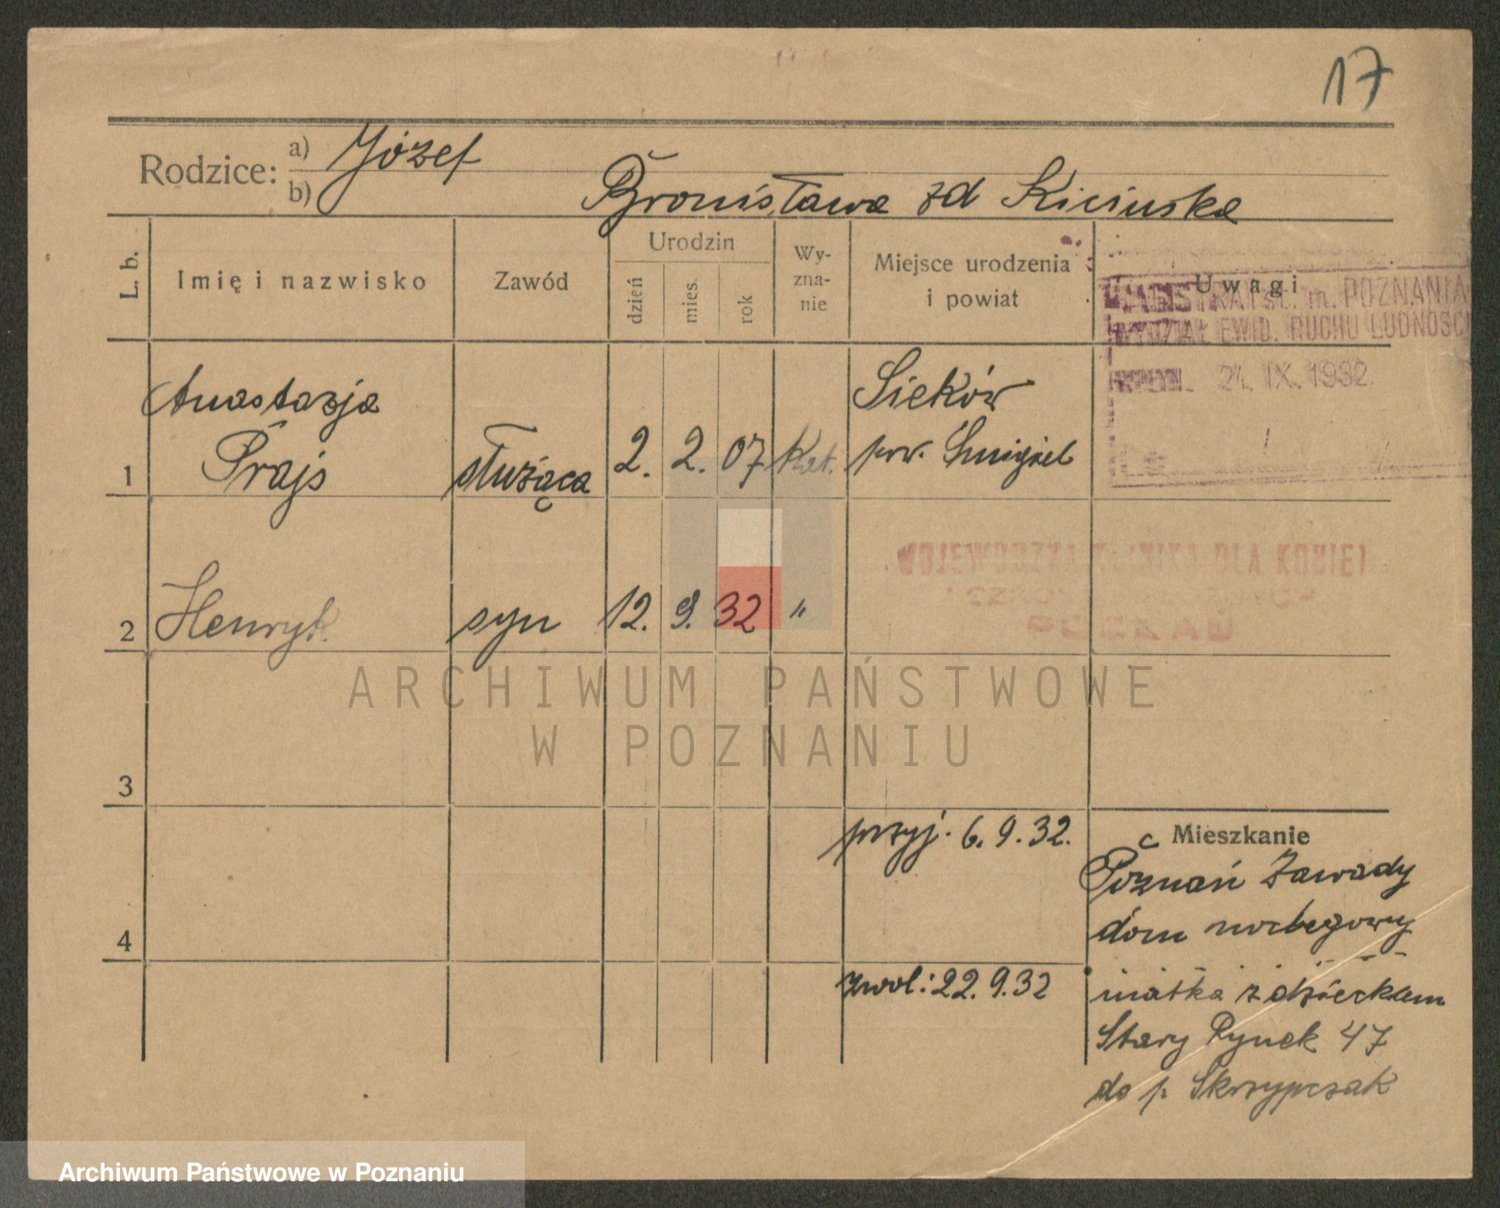 17
Rodzice: a) Józef
b) Bronisława zd Kicinska
L. b.
Imię i nazwisko
Zawód
Urodzin
dzień
mies.
rok
Wy-
zna-
nie
Miejsce urodzenia
i powiat
Uwagi
MAGISTRAT st. m. POZNANIA
WYDZIAŁ EWID. RUCHU LUDNOŚCI
WPŁYN. 24. IX. 1932
1 Anastazja Prajs służąca 2. 2. 07 Kat. Siekówr pow. Śmigiel
WOJEWÓDZKA KLINIKA DLA KOBIET
POZNAŃ
2 Henryk. syn 12. 9. 32 "
ARCHIWUM PAŃSTWOWE
W POZNANIU
3
przyj. 6. 9. 32.
Mieszkanie
Poznań Zawady
dom noclegowy
4
zwol: 22. 9. 32
matka z dzieckiem
Stary Rynek 47
do p. Skrzypczak
Archiwum Państwowe w Poznaniu